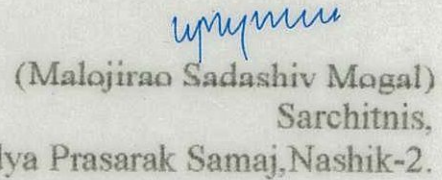 (Malojirao Sadashiv Mogal)
Sarchitnis,
Prasarak Samaj,Nashik-2.